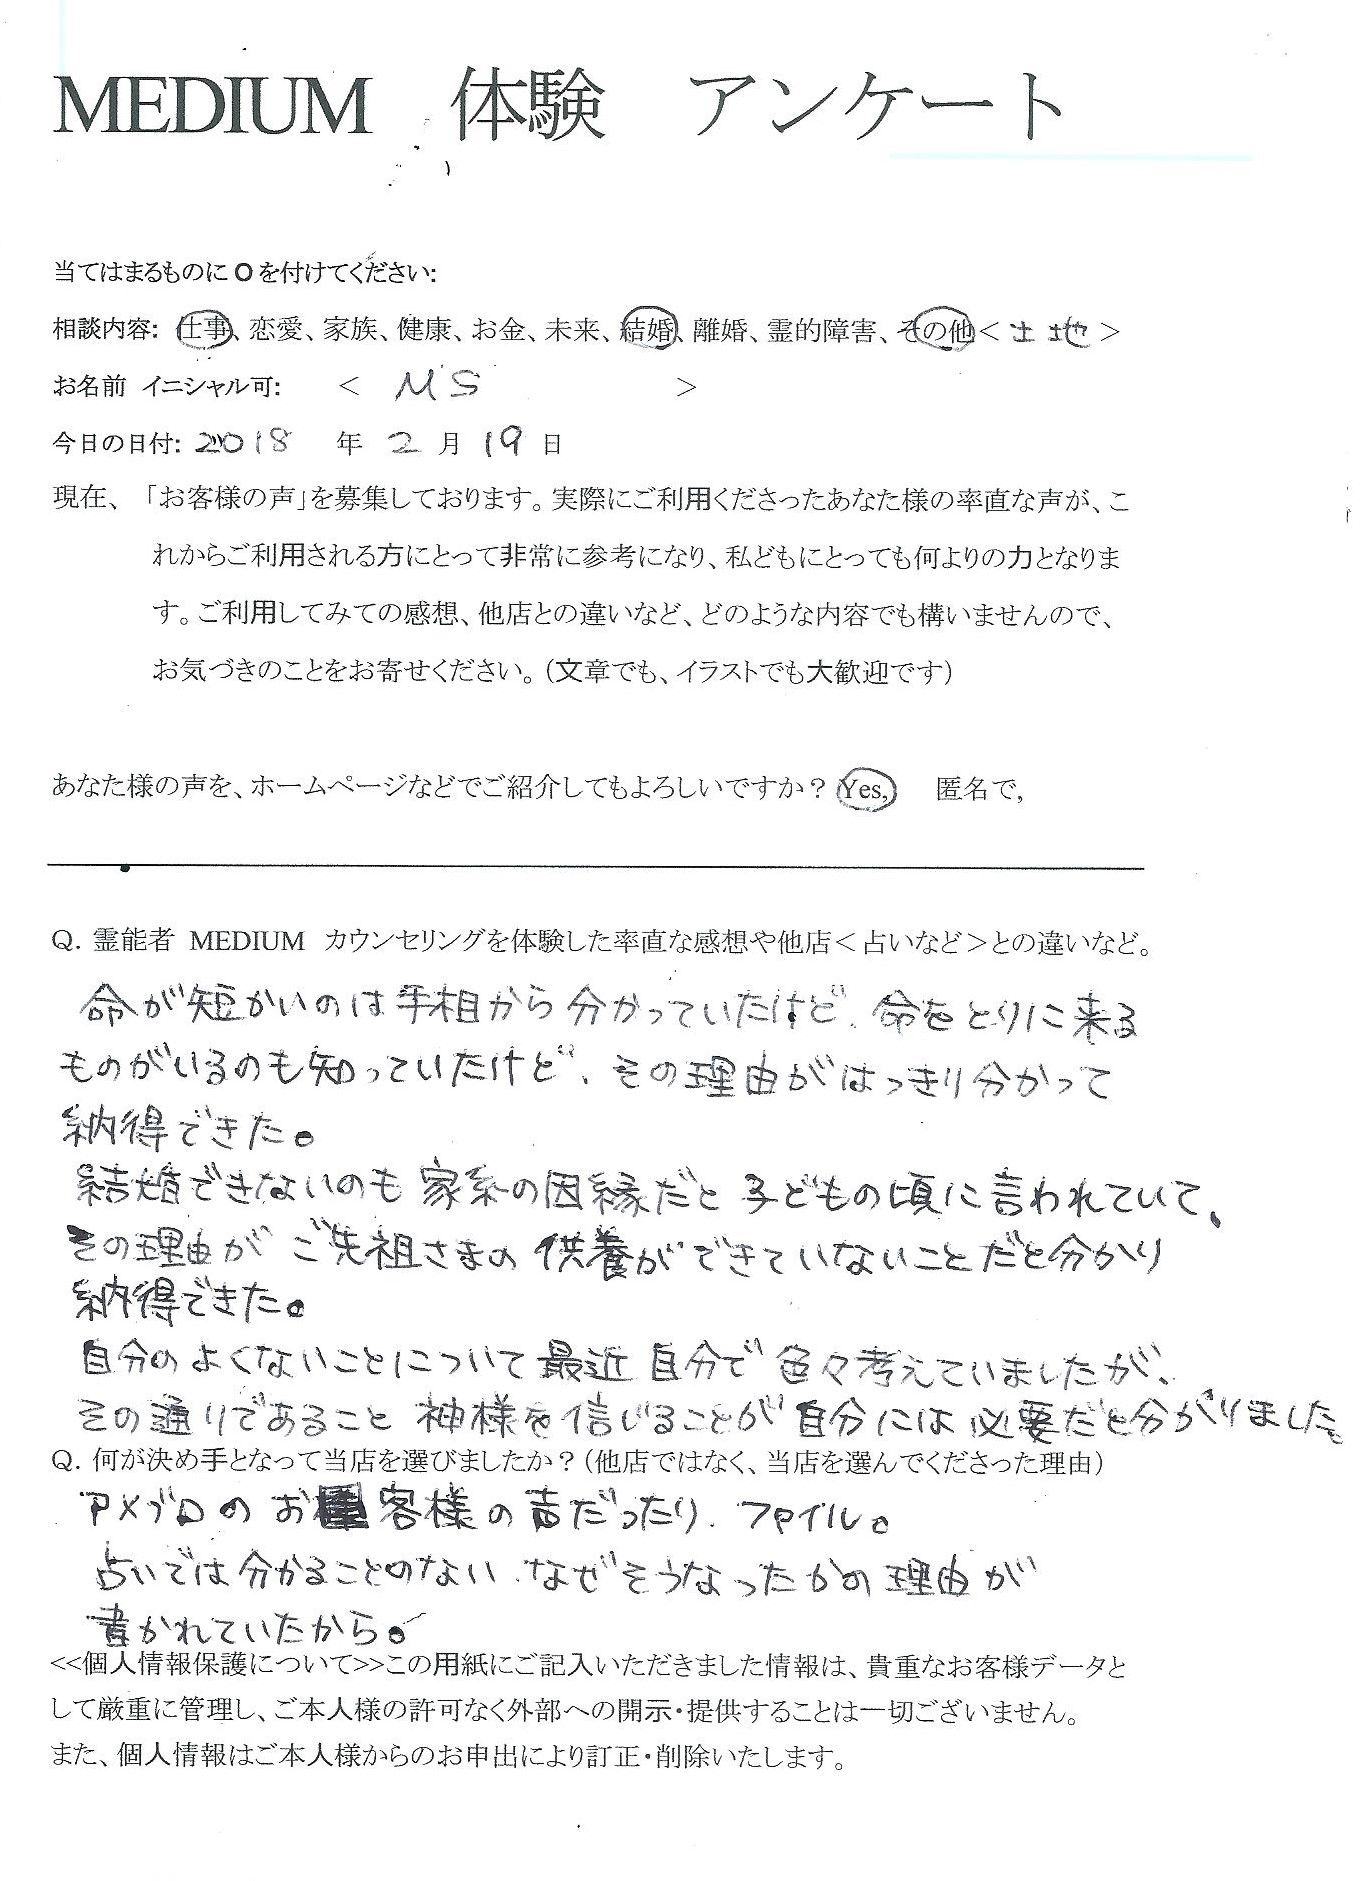 MEDIUM 体験 アンケート
当てはまるものに O を付けてください:
相談内容: 仕事、恋愛、家族、健康、お金、未来、結婚、離婚、霊的障害、その他＜土地＞
お名前 イニシャル可: ＜ MS ＞
今日の日付: 2018 年 2 月 19 日
現在、「お客様の声」を募集しております。実際にご利用くださったあなた様の率直な声が、こ
れからご利用される方にとって非常に参考になり、私どもにとっても何よりの力となりま
す。ご利用してみての感想、他店との違いなど、どのような内容でも構いませんので、
お気づきのことをお寄せください。(文章でも、イラストでも大歓迎です)
あなた様の声を、ホームページなどでご紹介してもよろしいですか? Yes, 匿名で,
Q. 霊能者 MEDIUM カウンセリングを体験した率直な感想や他店＜占いなど＞との違いなど。
命が短かいのは手相から分かっていたけど、命をとりに来る
ものがいるのも知っていたけど、その理由がはっきり分かって
納得できた。
結婚できないのも家系の因縁だと子どもの頃に言われていて、
その理由がご先祖さまの供養ができていないことだと分かり
納得できた。
自分のよくないことについて最近自分で色々考えていましたが、
その通りであること神様を信じることが自分には必要だと分かりました。
Q. 何が決め手となって当店を選びましたか?(他店ではなく、当店を選んでくださった理由)
アメブロのお客様の声だったり、ファイル。
占いでは分かることのない、なぜそうなったかの理由が
書かれていたから。
<<個人情報保護について>>この用紙にご記入いただきました情報は、貴重なお客様データと
して厳重に管理し、ご本人様の許可なく外部への開示・提供することは一切ございません。
また、個人情報はご本人様からのお申出により訂正・削除いたします。